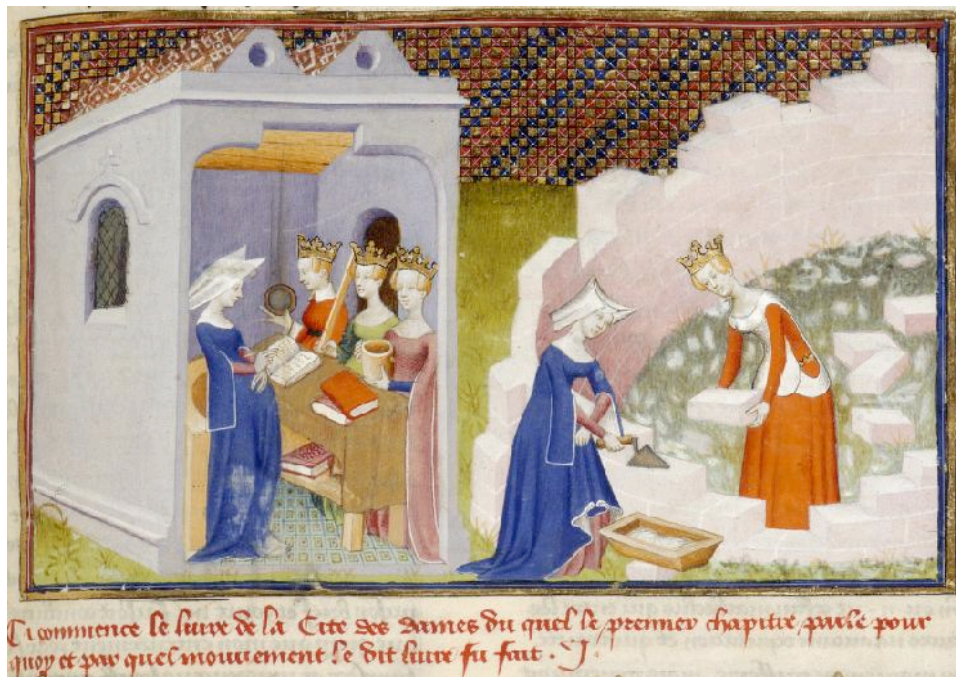 Ci commence le liure de la Cite des dames du quel le premier chapitre parle pour
quoy et par quel mouuement le dit liure fu fait . J .